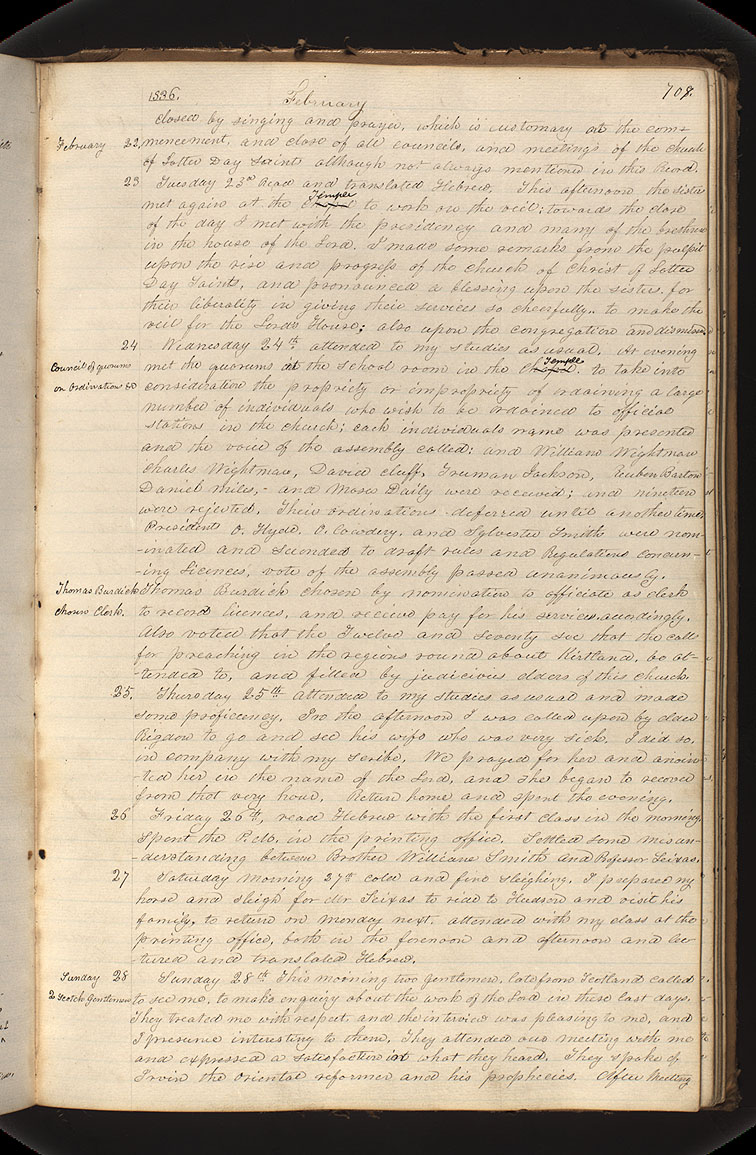 1836. February 708.
closed by singing and prayer, which is customary at the com-
February 22, mencement, and close of all councils, and meetings of the church
of Latter Day Saints although not always mentioned in this Record.
23 Tuesday 23rd Read and translated Hebrew. This afternoon the sisters
met again at the Temple to work on the veil; towards the close
of the day I met with the presidency and many of the brethren
in the house of the Lord. I made some remarks from the pulpit
upon the rise and progress of the church of Christ of Latter
Day Saints, and pronounced a blessing upon the sisters, for
their liberality in giving their services so cheerfully, to make the
veil for the Lord's House; also upon the congregation and dismissed
24 Wednesday 24th attended to my studies as usual. At evening
Council of quorums met the quorums at the school room in the Temple to take into
on Ordinations &c consideration the propriety or impropriety of ordaining a large
number of individuals who wish to be ordained to official
stations in the church; each individuals name was presented
and the voice of the assembly called: and William Wightman
Charles Wightman, David Cluff, Truman Jackson, Reuben Barton
Daniel Miles,- and Moses Daily were received; and nineteen
were rejected. Their ordinations deferred until another time,
Presidents O. Hyde. O. Cowdery, and Sylvester Smith were nom-
-inated and seconded to draft rules and Regulations concern-
-ing licences, vote of the assembly passed unanimously.
Thomas Burdick Thomas Burdick chosen by nomination to officiate as clerk
chosen Clerk. to record licences, and receive pay for his services accordingly.
Also voted that the Twelve and Seventy see that the call
for preaching in the regions round about Kirtland, be at-
-tended to, and filled by judicious elders of this church.
25. Thursday 25th attended to my studies as usual and made
some proficiency. In the afternoon I was called upon by elder
Rigdon to go and see his wife who was very sick, I did so,
in company with my scribe. We prayed for her and anoin-
-ted her in the name of the Lord, and she began to recover
from that very hour. Return home and spent the evening.
26 Friday 26th, read Hebrew with the first class in the morning,
Spent the P.M. in the printing office. Settled some misun-
-derstanding between Brother William Smith and Professor Seixas.
27 Saturday morning 27th cold and fine sleighing. I prepared my
horse and sleigh for Mr Seixas to ride to Hudson and visit his
family, to return on Monday next. attended with my class at the
printing office, both in the forenoon and afternoon and lec-
-tured and translated Hebrew.
Sunday 28 Sunday 28th This morning two gentlemen, late from Scotland called
2 Scotch Gentlemen to see me, to make enquiry about the work of the Lord in these last days.
They treated me with respect and the interview was pleasing to me, and
I presume interesting to them, They attended our meeting with me
and expressed a satisfaction in what they heard. They spoke of
Irvin the oriental reformer and his prophecies. After Meeting